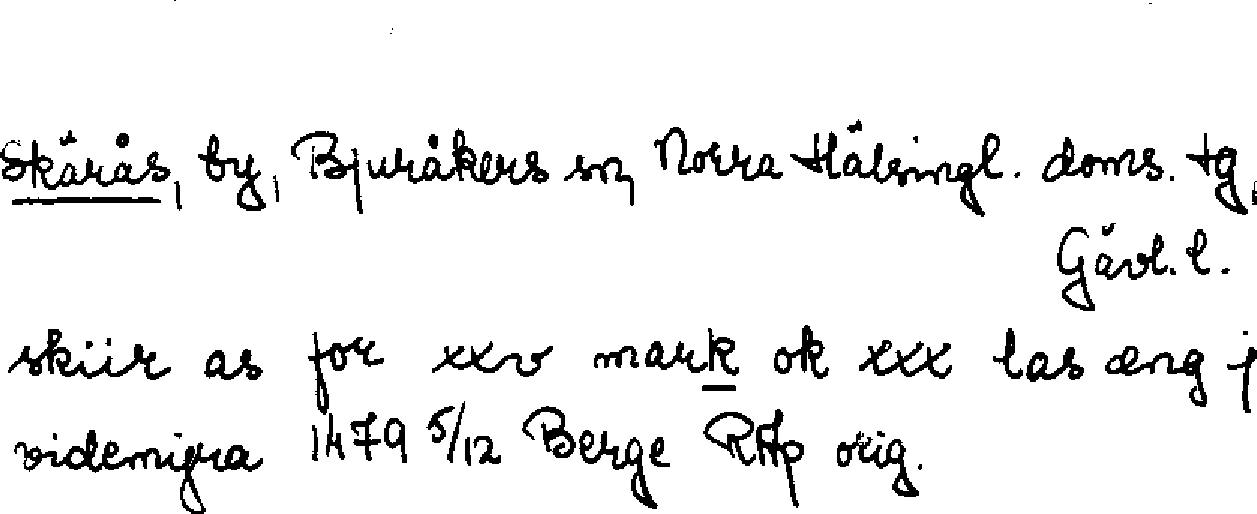 Skärås, by, Bjuråkers sn, Norra Hälsingl. doms. tg,
Gävl. l.
skiir as for xxv mark ok xxx las æng j
videmyra 1479 5/12 Berge RAp orig.